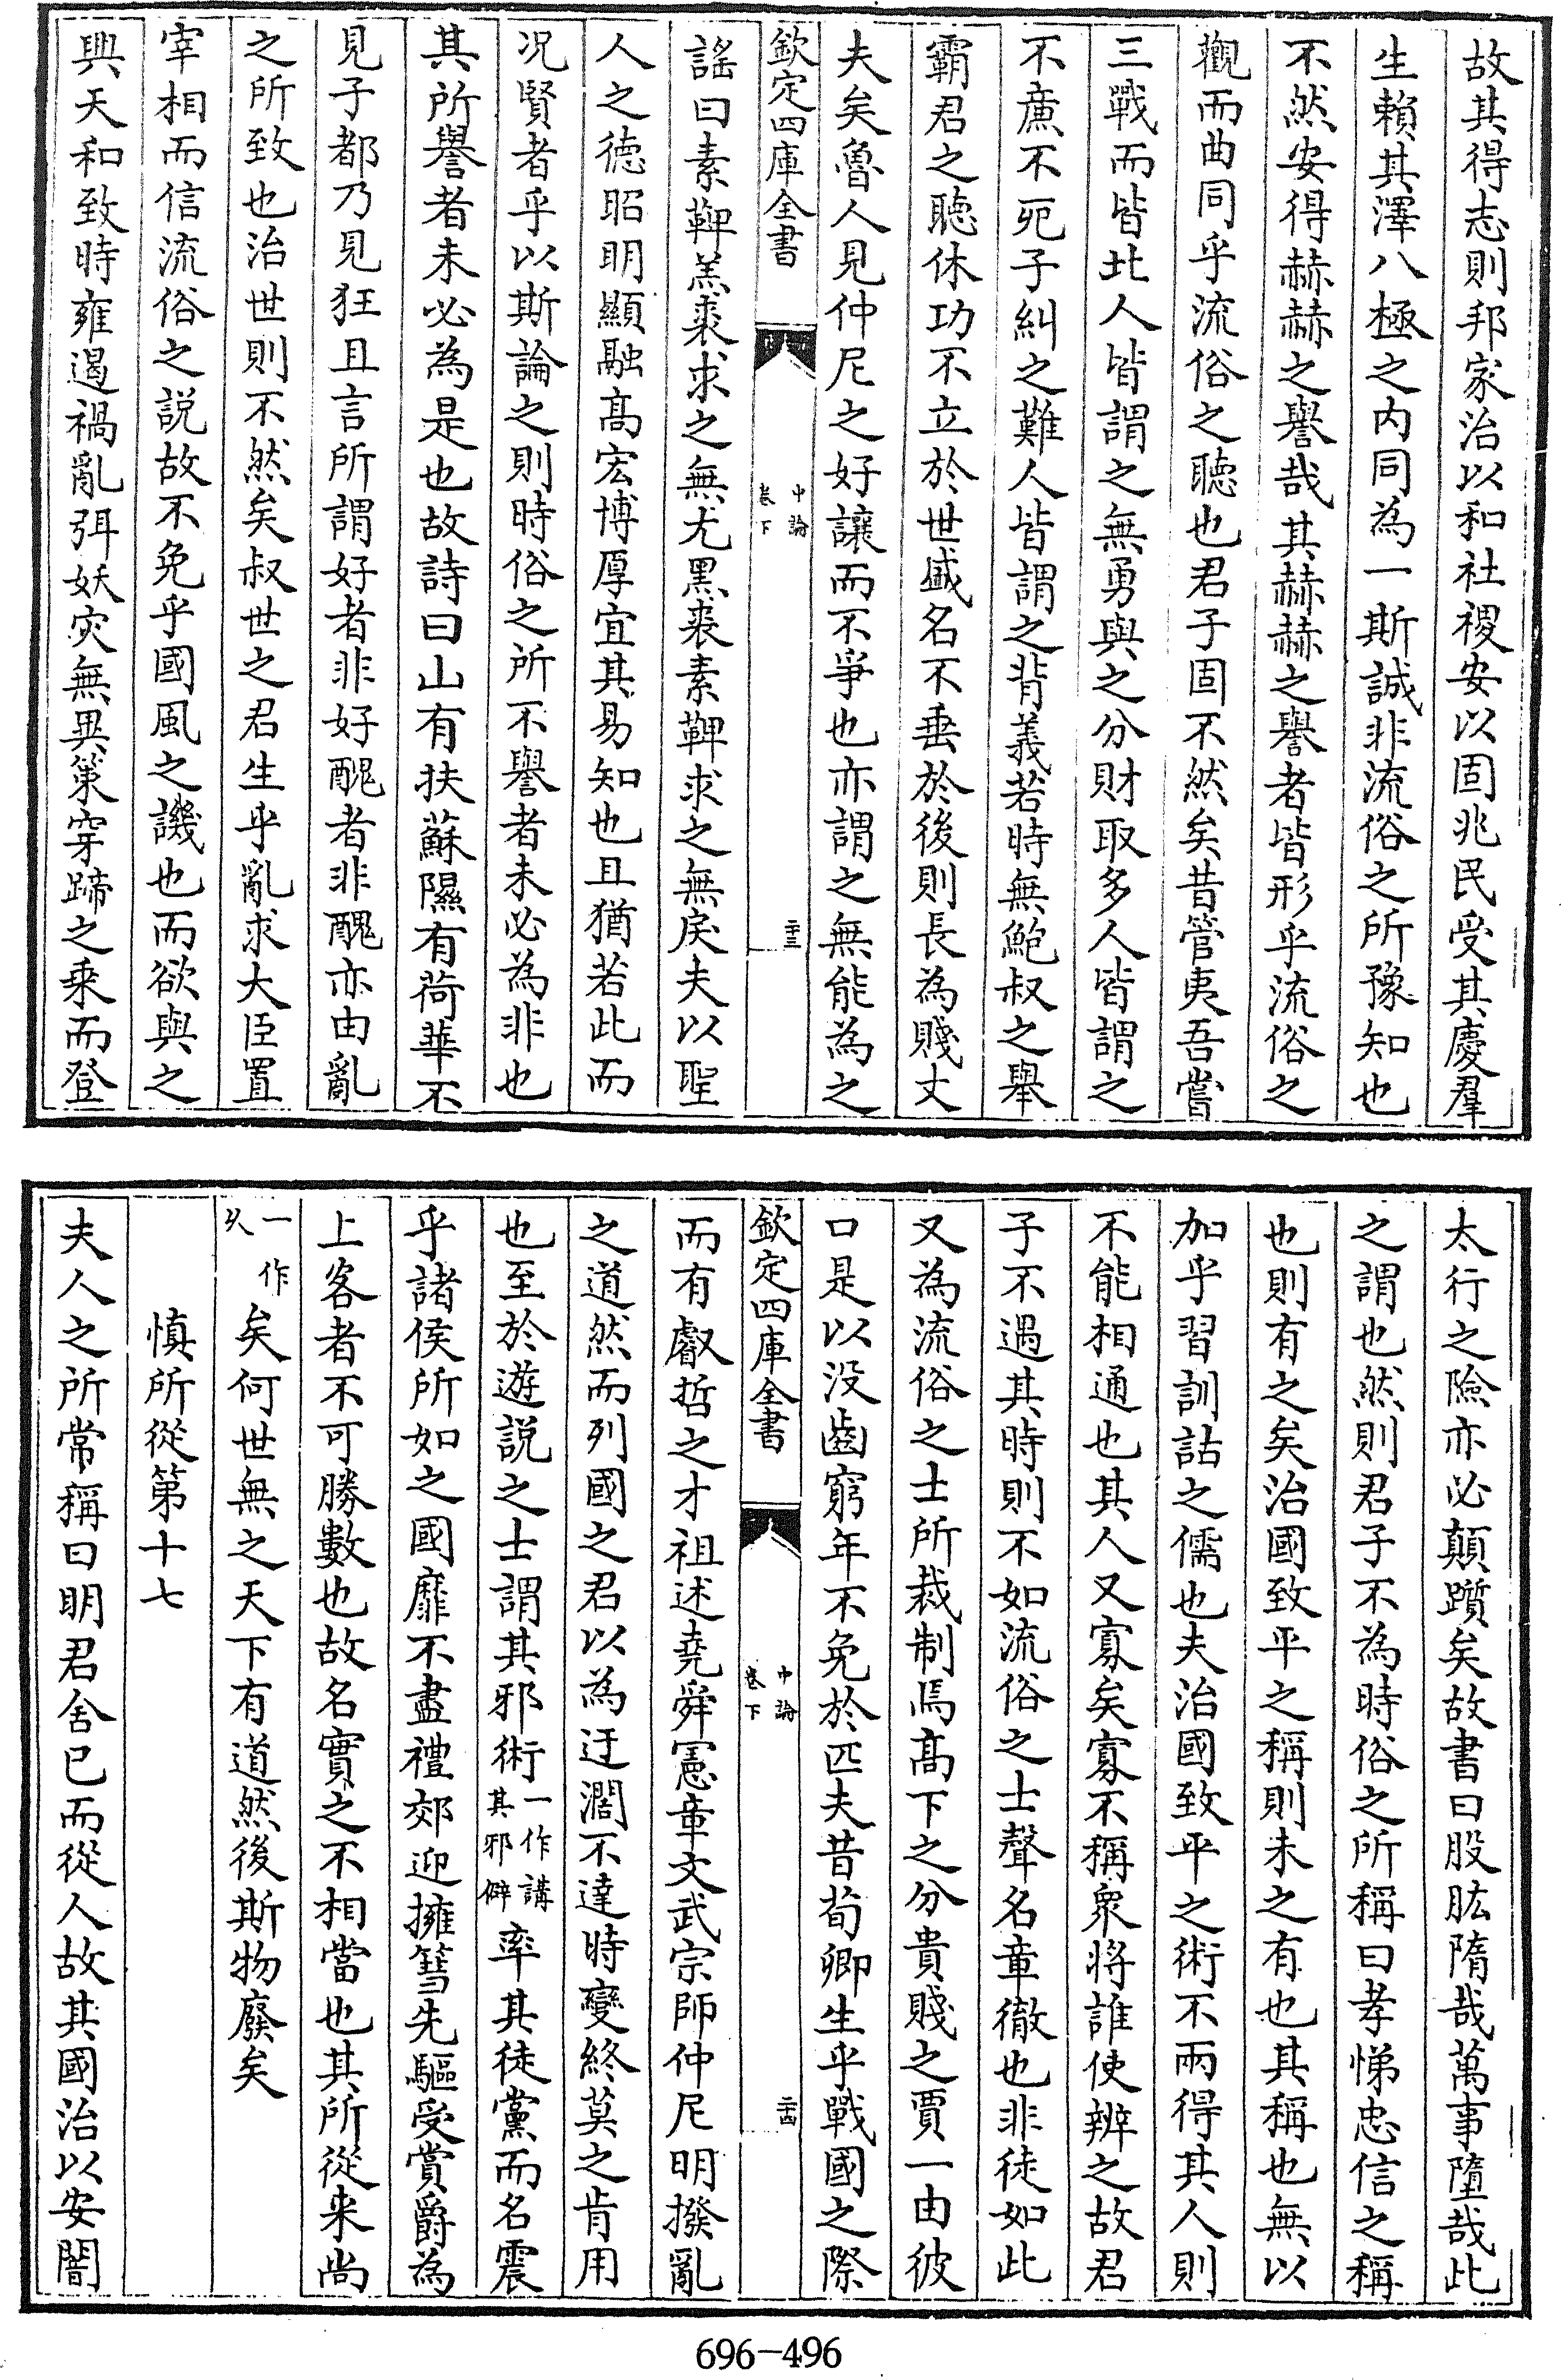 故其得志則邦家治以和社稷安以固兆民受其慶羣
生賴其澤八極之内同為一斯誠非流俗之所豫知也
不然安得赫赫之譽哉其赫赫之譽者皆形乎流俗之
觀而曲同乎流俗之聽也君子固不然矣昔管夷吾嘗
三戰而皆北人皆謂之無勇與之分財取多人皆謂之
不亷不死子糾之難人皆謂之背義若時無鮑叔之舉
霸君之聽休功不立於世盛名不垂於後則長為賤丈
夫矣魯人見仲尼之好讓而不爭也亦謂之無能為之
欽定四庫全書
中論
卷下
二十三
謡曰素鞞羔裘求之無尤黑裘素鞞求之無戾夫以聖
人之德昭明顯融髙宏博厚宜其易知也且猶若此而
况賢者乎以斯論之則時俗之所不譽者未必為非也
其所譽者未必為是也故詩曰山有扶蘇隰有荷華不
見子都乃見狂且言所謂好者非好醜者非醜亦由亂
之所致也治世則不然矣叔世之君生乎亂求大臣置
宰相而信流俗之説故不免乎國風之譏也而欲與之
興天和致時雍遏禍亂弭妖災無異策穿蹄之乘而登
太行之險亦必顛躓矣故書曰股肱隋哉萬事墮哉此
之謂也然則君子不為時俗之所稱曰孝悌忠信之稱
也則有之矣治國致平之稱則未之有也其稱也無以
加乎習訓詁之儒也夫治國致平之術不兩得其人則
不能相通也其人又寡矣寡不稱衆將誰使辨之故君
子不遇其時則不如流俗之士聲名章徹也非徒如此
又為流俗之士所裁制焉髙下之分貴賤之賈一由彼
口是以没齒窮年不免於匹夫昔荀卿生乎戰國之際
欽定四庫全書
中論
卷下
二十四
而有叡哲之才祖述堯舜憲章文武宗師仲尼明撥亂
之道然而列國之君以為迂濶不達時變終莫之肯用
也至於遊説之士謂其邪術一作講其邪僻率其徒黨而名震
乎諸侯所如之國靡不盡禮郊迎擁篲先驅受賞爵為
上客者不可勝數也故名實之不相當也其所從来尚
一作久矣何世無之天下有道然後斯物廢矣
慎所從第十七
夫人之所常稱曰明君舍已而從人故其國治以安闇
696-496